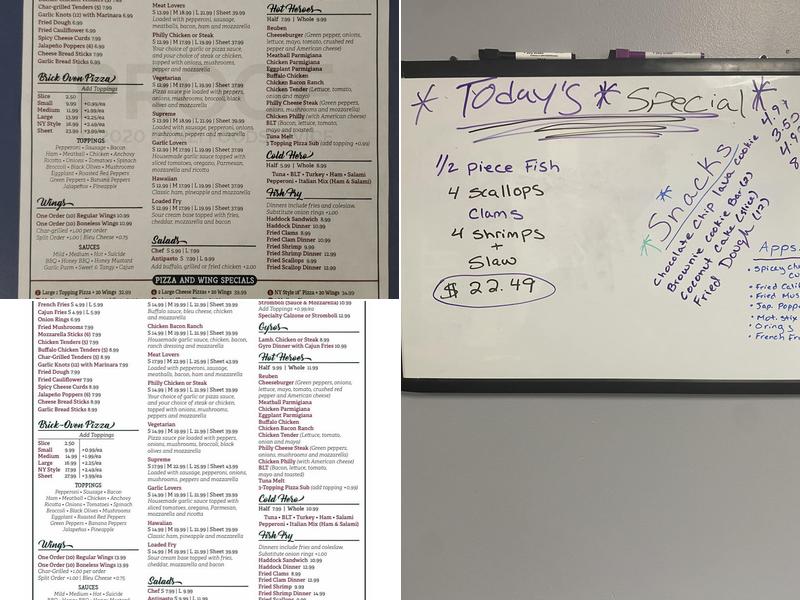 Char-grilled Tenders (5) 7.99
Garlic Knots (12) with Marinara 6.99
Fried Dough 6.99
Fried Cauliflower 6.99
Spicy Cheese Curds 8.99
Jalapeño Poppers (6) 6.99
Cheese Bread Sticks 8.99
Garlic Bread Sticks 6.99
Brick Oven Pizza
Add Toppings
Slice 2.50
Small 9.99 +0.99/ea
Medium 11.99 +1.99/ea
Large 13.99 +2.25/ea
NY Style 16.99 +2.49/ea
Sheet 23.99 +3.99/ea
TOPPINGS
Pepperoni • Sausage • Bacon
Ham • Meatball • Chicken • Anchovy
Ricotta • Onions • Tomatoes • Spinach
Broccoli • Black Olives • Mushrooms
Eggplant • Roasted Red Peppers
Green Peppers • Banana Peppers
Jalapeños • Pineapple
Wings
One Order (10) Regular Wings 10.99
One Order (10) Boneless Wings 10.99
Char-grilled +1.00 per order
Split Order +1.00 | Bleu Cheese +0.75
SAUCES
Mild • Medium • Hot • Suicide
BBQ • Honey BBQ • Honey Mustard
Garlic Parm • Sweet & Tangy • Cajun
Meat Lovers
S 13.99 | M 18.99 | L 21.99 | Sheet 39.99
Loaded with pepperoni, sausage,
meatballs, bacon, ham and mozzarella
Philly Chicken or Steak
S 12.99 | M 17.99 | L 19.99 | Sheet 37.99
Your choice of garlic or pizza sauce,
and your choice of steak or chicken,
topped with onions, mushrooms,
pepper and mozzarella
Vegetarian
S 12.99 | M 17.99 | L 19.99 | Sheet 37.99
Pizza sauce pie loaded with peppers,
onions, mushrooms, broccoli, black
olives and mozzarella
Supreme
S 13.99 | M 18.99 | L 20.99 | Sheet 39.99
Loaded with sausage, pepperoni, onions,
mushrooms, peppers and mozzarella
Garlic Lovers
S 12.99 | M 17.99 | L 19.99 | Sheet 37.99
Housemade garlic sauce topped with
sliced tomatoes, oregano, Parmesan,
mozzarella and ricotta
Hawaiian
S 12.99 | M 17.99 | L 19.99 | Sheet 37.99
Classic ham, pineapple and mozzarella
Loaded Fry
S 12.99 | M 17.99 | L 19.99 | Sheet 37.99
Sour cream base topped with fries,
cheddar, mozzarella and bacon
Salads
Chef S 5.99 | L 7.99
Antipasto S 7.99 | L 9.99
Add buffalo, grilled or fried chicken +2.00
Hot Heroes
Half 7.99 | Whole 9.99
Reuben
Cheeseburger (Green pepper, onions,
lettuce, mayo, tomato, crushed red
pepper and American cheese)
Meatball Parmigiana
Chicken Parmigiana
Eggplant Parmigiana
Buffalo Chicken
Chicken Bacon Ranch
Chicken Tender (Lettuce, tomato,
onion and mayo)
Philly Cheese Steak (Green peppers,
onions, mushrooms and mozzarella)
Chicken Philly (with American cheese)
BLT (Bacon, lettuce, tomato,
mayo and toasted)
Tuna Melt
3 Topping Pizza Sub (add topping +0.99)
Cold Hero
Half 5.99 | Whole 8.99
Tuna • BLT • Turkey • Ham • Salami
Pepperoni • Italian Mix (Ham & Salami)
Fish Fry
Dinners include fries and coleslaw.
Substitute onion rings +1.00
Haddock Sandwich 8.99
Haddock Dinner 10.99
Fried Clams 8.99
Fried Clam Dinner 10.99
Fried Shrimp 9.99
Fried Shrimp Dinner 11.99
Fried Scallops 9.99
Fried Scallop Dinner 11.99
PIZZA AND WING SPECIALS
Large 1 Topping Pizza + 20 Wings 32.99
2 Large Cheese Pizza + 20 Wings
NY Style 1 Topping Pizza + 20 Wings 34.99
* Today's * Special *
1/2 piece Fish
4 scallops
Clams
4 shrimps
+
Slaw
$ 22.49
Snacks
Chocolate Chip lava Cookie
Brownie Cookie Bar (2)
Coconut Cake (slice)
Fried Dough (12)
Apps.
• Spicy
• Fried
• Fried
• Jap. Popp
• Mot. Stix
• O rings
• French Fr
French Fries S 4.99 | L 5.99
Cajun Fries S 4.99 | L 5.99
Onion Rings 6.99
Fried Mushrooms 7.99
Mozzarella Sticks (6) 7.99
Chicken Tenders (5) 7.99
Buffalo Chicken Tenders (5) 8.99
Char-Grilled Tenders (5) 8.99
Garlic Knots (12) with Marinara 7.99
Fried Dough 7.99
Fried Cauliflower 7.99
Spicy Cheese Curds 8.99
Jalapeño Poppers (6) 7.99
Cheese Bread Sticks 8.99
Garlic Bread Sticks 8.99
Brick-Oven Pizza
Add Toppings
Slice 2.50
Small 9.99 +0.99/ea
Medium 14.99 +1.99/ea
Large 16.99 +2.25/ea
NY Style 17.99 +2.49/ea
Sheet 27.99 +3.99/ea
TOPPINGS
Pepperoni • Sausage • Bacon
Ham • Meatball • Chicken • Anchovy
Ricotta • Onions • Tomatoes • Spinach
Broccoli • Black Olives • Mushrooms
Eggplant • Roasted Red Peppers
Green Peppers • Banana Peppers
Jalapeños • Pineapple
Wings
One Order (10) Regular Wings 13.99
One Order (10) Boneless Wings 13.99
Char-Grilled +1.00 per order
Split Order +1.00 | Bleu Cheese +0.75
SAUCES
Mild • Medium • Hot • Suicide
S 14.99 | M 19.99 | L 21.99 | Sheet 39.99
Buffalo sauce, bleu cheese,
chicken and mozzarella
Chicken Bacon Ranch
S 14.99 | M 19.99 | L 21.99 | Sheet 39.99
Housemade garlic sauce, chicken, bacon,
ranch dressing and mozzarella
Meat Lovers
S 17.99 | M 22.99 | L 25.99 | Sheet 43.99
Loaded with pepperoni, sausage,
meatball, bacon, ham and mozzarella
Philly Chicken or Steak
S 14.99 | M 19.99 | L 21.99 | Sheet 39.99
Your choice of garlic or pizza sauce,
and your choice of steak or chicken,
topped with onions, mushrooms,
peppers and mozzarella
Vegetarian
S 14.99 | M 19.99 | L 21.99 | Sheet 39.99
Pizza sauce pie loaded with peppers,
onions, mushrooms, broccoli, black
olives and mozzarella
Supreme
S 17.99 | M 22.99 | L 25.99 | Sheet 43.99
Loaded with sausage, pepperoni, onions,
mushrooms, peppers and mozzarella
Garlic Lovers
S 14.99 | M 19.99 | L 21.99 | Sheet 39.99
Housemade garlic sauce topped with
sliced tomatoes, oregano, Parmesan,
mozzarella and ricotta
Hawaiian
S 14.99 | M 19.99 | L 21.99 | Sheet 39.99
Classic ham, pineapple and mozzarella
Loaded Fry
S 14.99 | M 19.99 | L 21.99 | Sheet 39.99
Sour cream base topped with fries,
cheddar, mozzarella and bacon
Salads
Chef S 7.99 | L 9.99
Antipasto S 9.99 | L 11.99
Stromboli (Sauce & Mozzarella) 10.99
Add Toppings +0.99/ea
Specialty Calzone or Stromboli 12.99
Gyros
Lamb, Chicken or Steak 8.99
Gyro Dinner with Cajun Fries 10.99
Hot Heroes
Half 9.99 | Whole 11.99
Reuben
Cheeseburger (Green peppers, onions,
lettuce, mayo, tomato, crushed red
pepper and American cheese)
Meatball Parmigiana
Chicken Parmigiana
Eggplant Parmigiana
Buffalo Chicken
Chicken Bacon Ranch
Chicken Tender (Lettuce, tomato,
onion and mayo)
Philly Cheese Steak (Green peppers,
onions, mushrooms and mozzarella)
Chicken Philly (with American cheese)
BLT (Bacon, lettuce, tomato,
mayo and toasted)
Tuna Melt
3-Topping Pizza Sub (add topping +0.99)
Cold Hero
Half 7.99 | Whole 10.99
Tuna • BLT • Turkey • Ham • Salami
Pepperoni • Italian Mix (Ham & Salami)
Fish Fry
Dinners include fries and coleslaw.
Substitute onion rings +1.00
Haddock Sandwich 10.99
Haddock Dinner 12.99
Fried Clams 8.99
Fried Clam Dinner 12.99
Fried Shrimp 9.99
Fried Shrimp Dinner 14.99